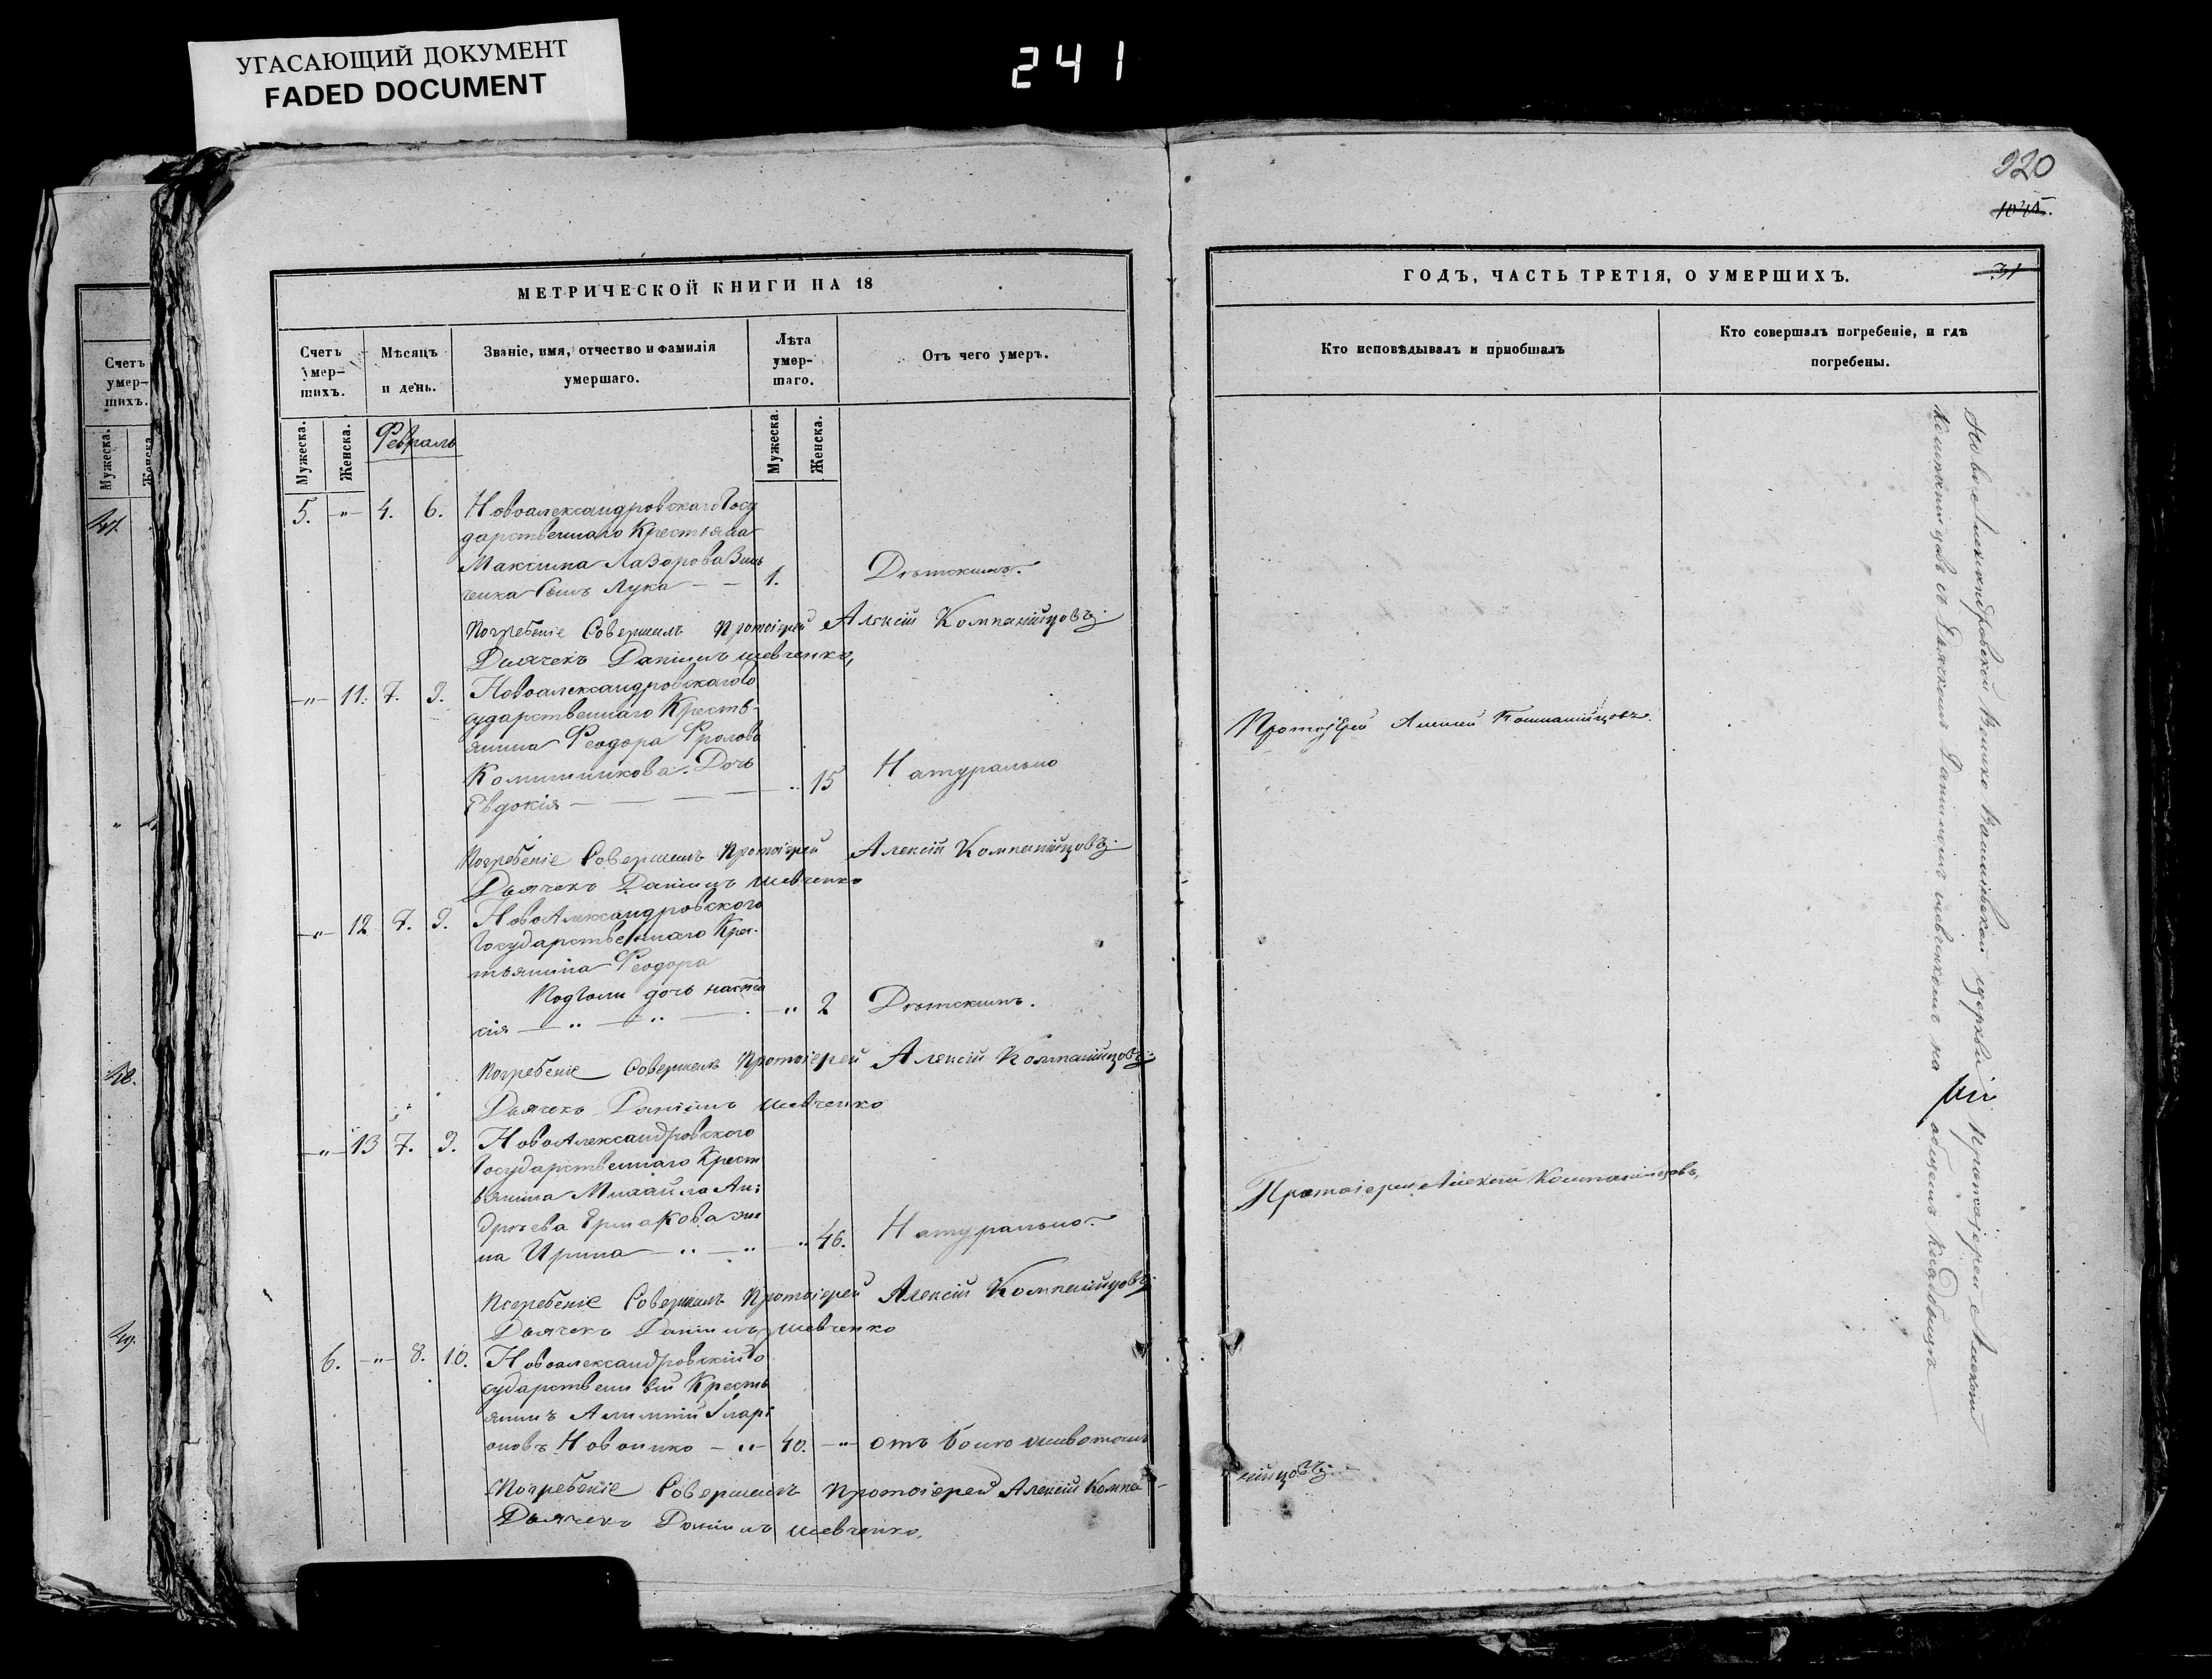 УГАСАЮЩИЙ ДОКУМЕНТ
FADED DOCUMENT
241
Счетъ
умер-
шихъ.
Мужеска.
Женска
47.
48.
49.
МЕТРИЧЕСКОЙ КНИГИ НА 18
Счетъ
умер-
шихъ.
Мѣсяцъ
и день.
Званіе, имя, отчество и фамилія
умершаго.
Лѣта
умер-
шаго.
Отъ чего умеръ.
Мужеска.
Женска.
Февраль
Мужеска
Женска.
5. -"- 4. 6. Новоалександровскаго Госу
дарственнаго Крестьяна
Максима Лазорова
ченка Сынъ Лука - - 1. Дѣтскимъ.
Погребеніе Совершалъ Протоіерей Алексій Компанійцовъ
Дьячекъ Даніилъ Шевченко,
-"- 11. 7. 9. Новоалександровскаго Го
сударственнаго Кресть-
янина Феодора Фролова
Дочь
Евдокія - - - .. 15 Натурально
Погребеніе Совершалъ Протоіерей Алексій Компанійцовъ
Дьячекъ Даніилъ Шевченко
-"- 12 7. 9. НовоАлександровского
Государственнаго Крес-
тьянина Феодора
дочь Настса
кія - " - " - " 2 Дѣтскимъ.
Погребеніе Совершалъ Протоіерей Алексій Компанійцовъ
Дьячекъ Даніилъ Шевченко
-"- 13 7. 9. НовоАлександровского
Государственнаго Крест
ьянина Михаила Ан:
дрѣева Ермакова же
на Ирина - " - " - " 46. Натурально
Погребеніе Совершалъ Протоіерей Алексій Компанійцовъ
Дьячекъ Даніилъ Шевченко
6. -"- 8. 10. Новоалександровскій Го
сударственный Кресть
янинъ Алимпій Іларі
оновъ - " - 40. -"- отъ боли животомъ
Погребеніе Совершалъ Протоіерей Алексій Компа-
Дьячекъ Даніилъ Шевченко,
920
1045.
31
ГОДЪ, ЧАСТЬ ТРЕТІЯ, О УМЕРШИХЪ.
Кто исповѣдывалъ и приобшалъ
Кто совершалъ погребеніе, и гдѣ
погребены.
Протоіерей Алексій Компанійцовъ.
Протоіерей Алексій Компанійцовъ,
нійцовъ
Новоалександровской церкви Протоіерей Алексій
Компанійцовъ съ Дьячкомъ Даніиломъ Шевченкомъ на общемъ кладбищѣ